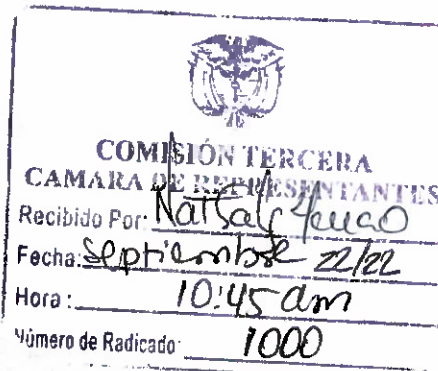 COMISIÓN TERCERA
CAMARA DE REPRESENTANTES
Recibido Por:
Fecha: Septiembre 22/22
Hora: 10:45 am
Número de Radicado: 1000